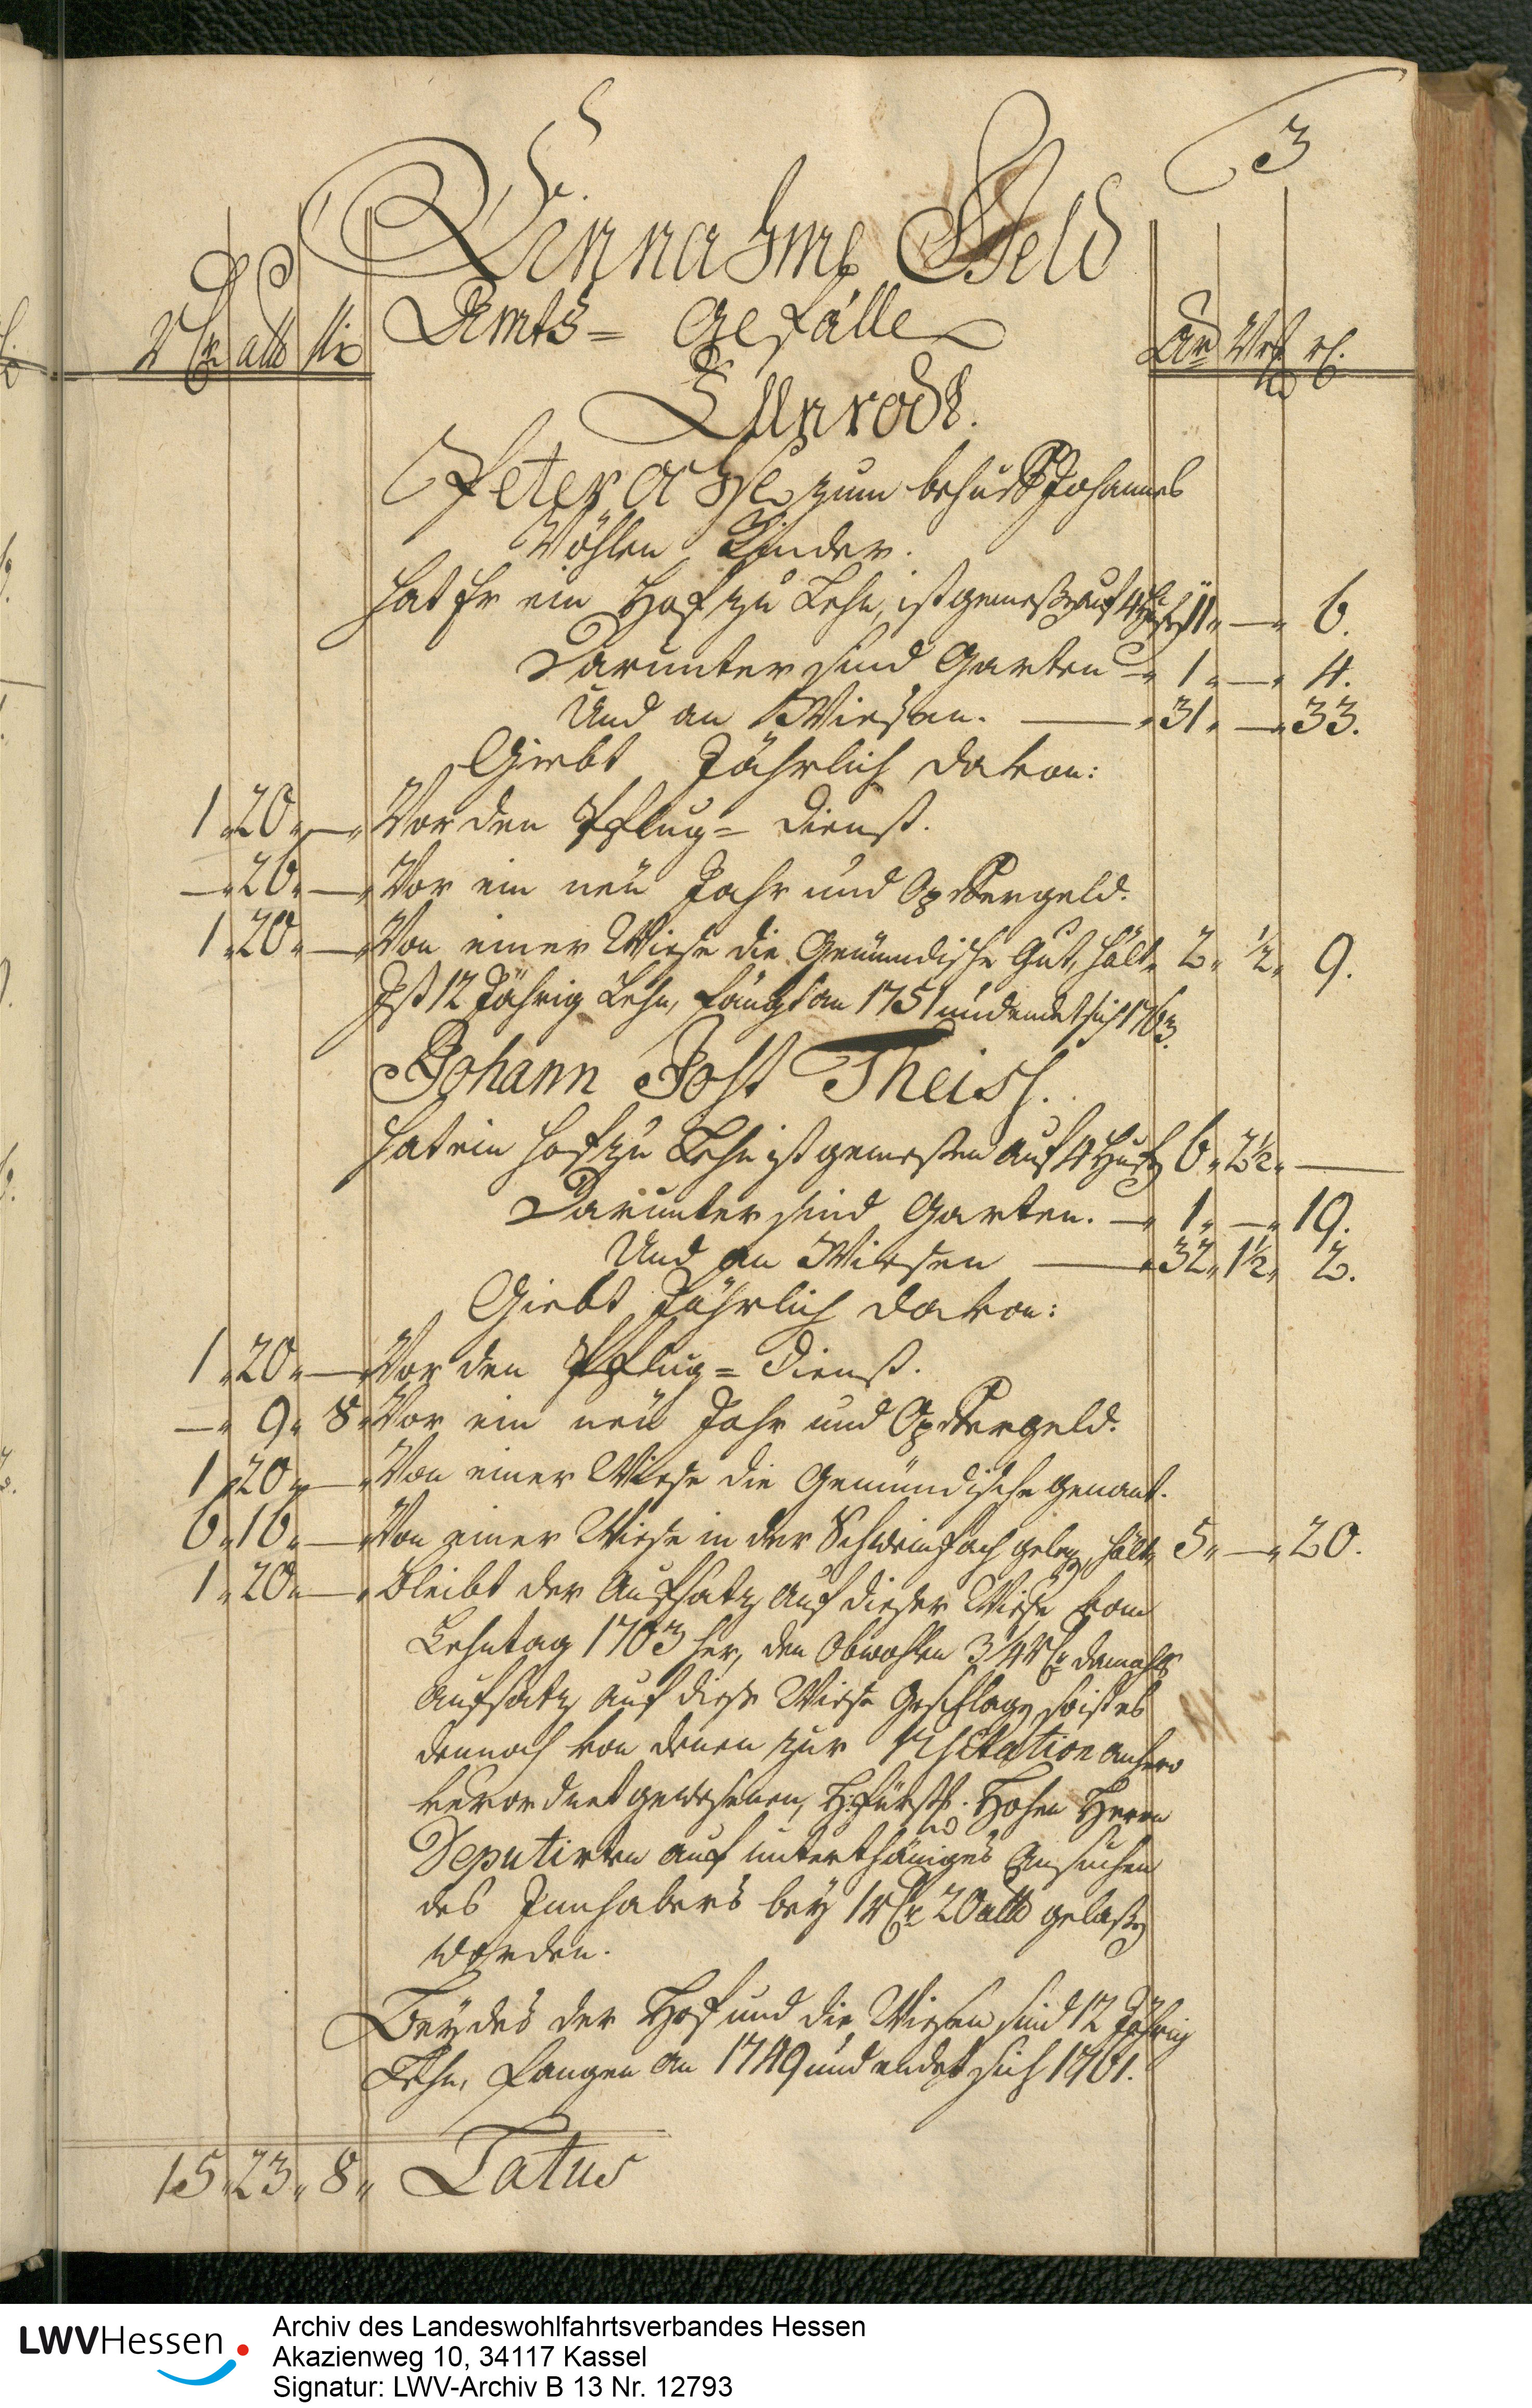 3
Einnahme Geld
Amts- Gefälle
rthlr alb hlr Ar Vrt rt.
Ellnrode.
Peter Ochse zum behuff Johannes
Vöhlen Kinder.
Hat Er ein Hof zu Lehn, ist gemeßen auf 4 11 " — " 6.
Darunter sind Garten — " 1 " — " 4.
Und an Wiesen. — " 31 " — " 33.
Giebt Jährlich davon:
1 " 20 " — " Vor den Pflug- Dienst.
— " 26 " — " Vor ein neu Jahr und Opffergeld.
1 " 20 " — " Von einer Wiese die Gemündische Gut, hält " 2 " ½ " 9.
Ist 12 Jährig Lehn, fängt an 1751 und endet sich 1763.
Johann Jost Theiss.
Hat ein Hof zu Lehn ist gemeßen auf 4 Hufen 6 " 2½ " —
Darunter sind Garten. — " 1 " — " 19.
Und an Wiesen — " 32 " 1½ " 2.
Giebt Jährlich davon:
1 " 20 " — " Vor den Pflug- Dienst.
— " 9 " 8 " Vor ein neu Jahr und Opffergeld.
1 " 20 " — " Von einer Wiese die Gemündische genant.
6 " 16 " — " Von einer Wiese in der Schweinfach gelegen, hält " 5 " — " 20.
1 " 20 " — " Bleibt der Aufsatz auf dieser Wiese vom
Lehntag 1703 her, den Obwohlen 3¼ rthlr damahls
Aufsatz auf diese Wiese geschlagen, so ist es
dennoch von denen zur Visitation anhero
verordnet gewesenen, Hfürstl. Hohen Herrn
Deputirten auf unterthäniges Ansuchen
des Innhabers bey 1 rthlr 20 alb gelaßen
worden.
Beydes der Hof und die Wiesen sind 12 Jährig
Lehn, fangen an 1749 und endet sich 1761.
15 " 23 " 8 " Latus
LWVHessen
Archiv des Landeswohlfahrtsverbandes Hessen
Akazienweg 10, 34117 Kassel
Signatur: LWV-Archiv B 13 Nr. 12793